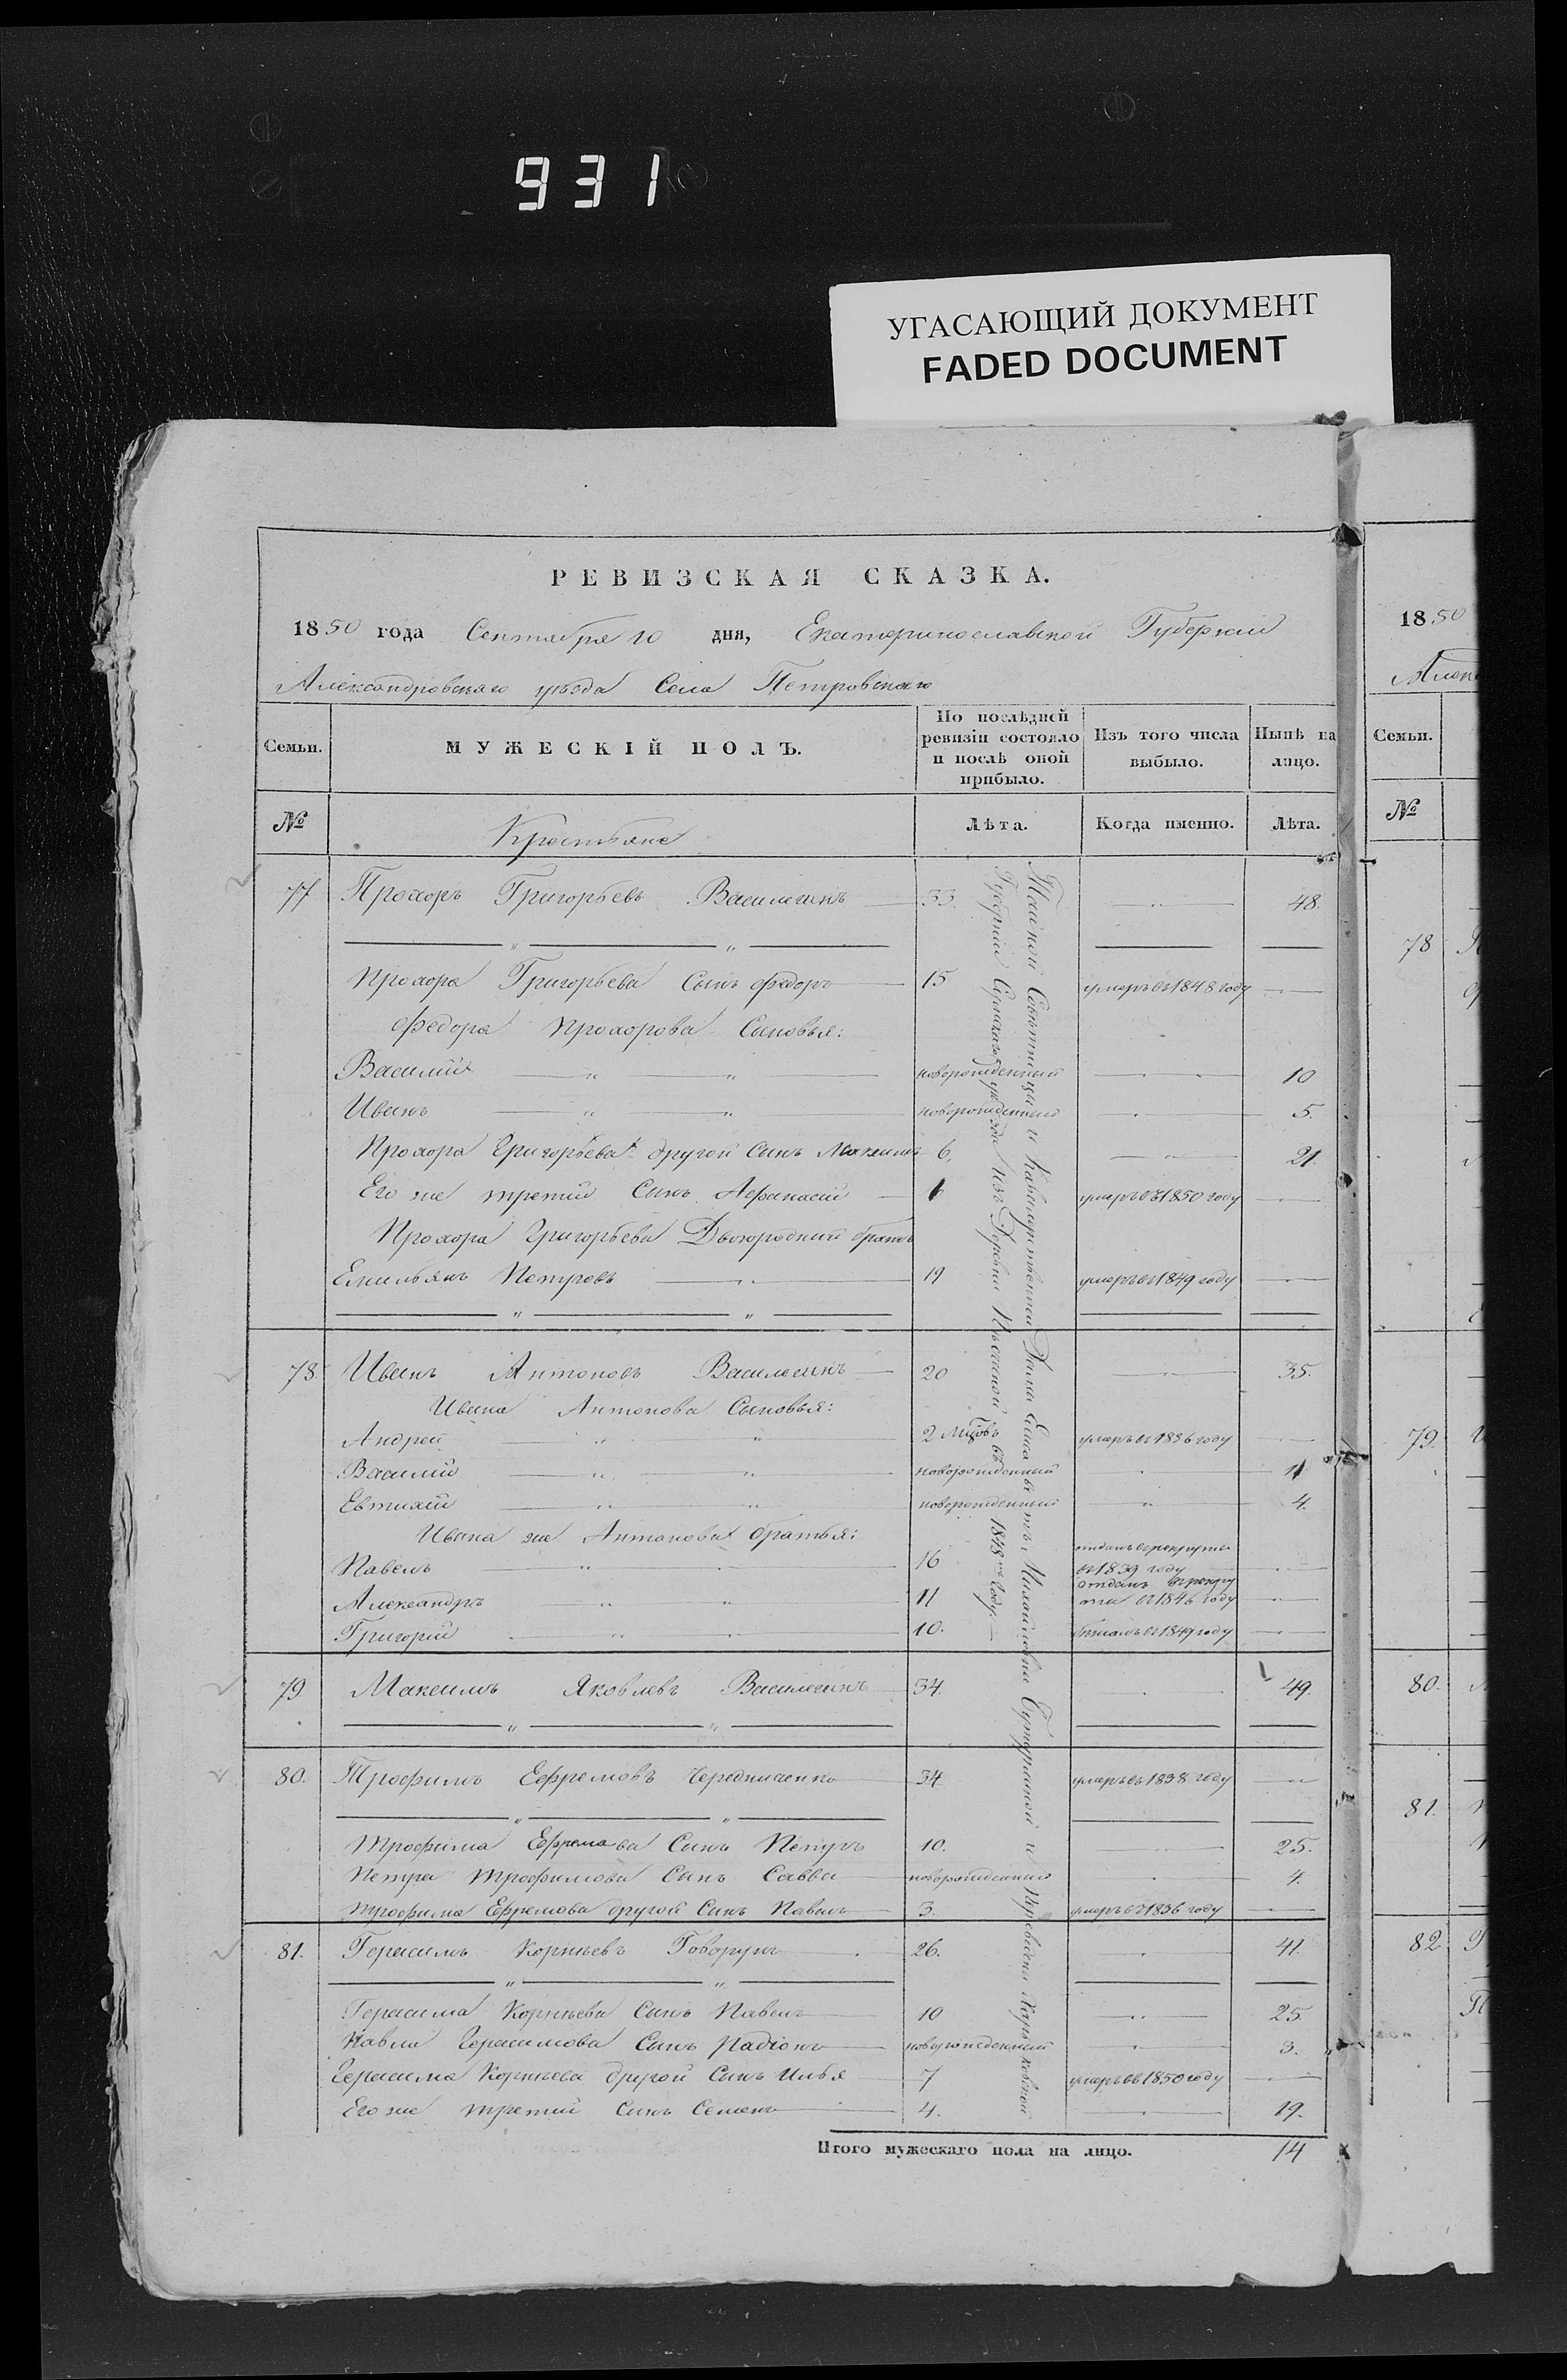 931
УГАСАЮЩИЙ ДОКУМЕНТ
FADED DOCUMENT
РЕВИЗСКАЯ СКАЗКА.
1850 года Сентября 10 дня, Екатеринославской Губерніи
Александровскаго уѣзда Села Петровскаго
Семьи. МУЖЕСКІЙ ПОЛЪ. По послѣдней ревизіи состояло и послѣ оной прибыло. Изъ того числа выбыло. Нынѣ на лицо.
№ Крестьяне Лѣта. Когда именно. Лѣта.
77 Прохоръ Григорьевъ 33. 48.
Прохора Григорьева Сынъ Федоръ 15 умеръ въ 1848 году
Федора Прохорова Сыновья:
Василий новорожденный 10
Иванъ новорожденный 5.
Прохора Григорьева другой Сынъ Максимъ 6. 21.
Его же третий Сынъ Афанасий умеръ въ 1850 году
Прохора Григорьева Двоюродний братъ
Емильянъ Петровъ 19 умеръ въ 1849 году
78. Иванъ Антоновъ 20 35.
Ивана Антонова Сыновья:
Андрей 2 умеръ въ 1836 году
Василий новорожденный 11
Евтихий новорожденный 4.
Ивана же Антонова братья:
Павелъ 16 отданъ въ рекруты
въ 1839 году
Александръ 11 отданъ въ рекру
ты въ 1846 году
Григорий 10. въ 1849 году
79. Максимъ Яковлевъ 34. 49.
80. Трофимъ Ефремовъ Чередниченко 34. умеръ въ 1838 году
Трофима Ефремова Сынъ Петръ 10. 25.
Петра Трофимова Сынъ Савва новорожденний 4.
Трофима Ефремова другой Сынъ Павелъ 3. умеръ въ 1836 году
81. Герасимъ Корнѣевъ Говорунъ 26. 41.
Герасима Корнѣева Сынъ Павелъ 10 25.
Павла Герасимова Сынъ Радіонъ новорожденный 3.
Герасима Корнѣева другой Сынъ Илья 7 умеръ въ 1850 году
Его же третий Сынъ Семенъ 4. 19.
Итого мужескаго пола на лицо. 14
Тайной Совѣтницы и Кавалерственной Дамы Михайловны и
Губерніи уѣзда изъ Деревни въ 1848 году.
1850
Семьи.
№
78
79.
80.
81.
82